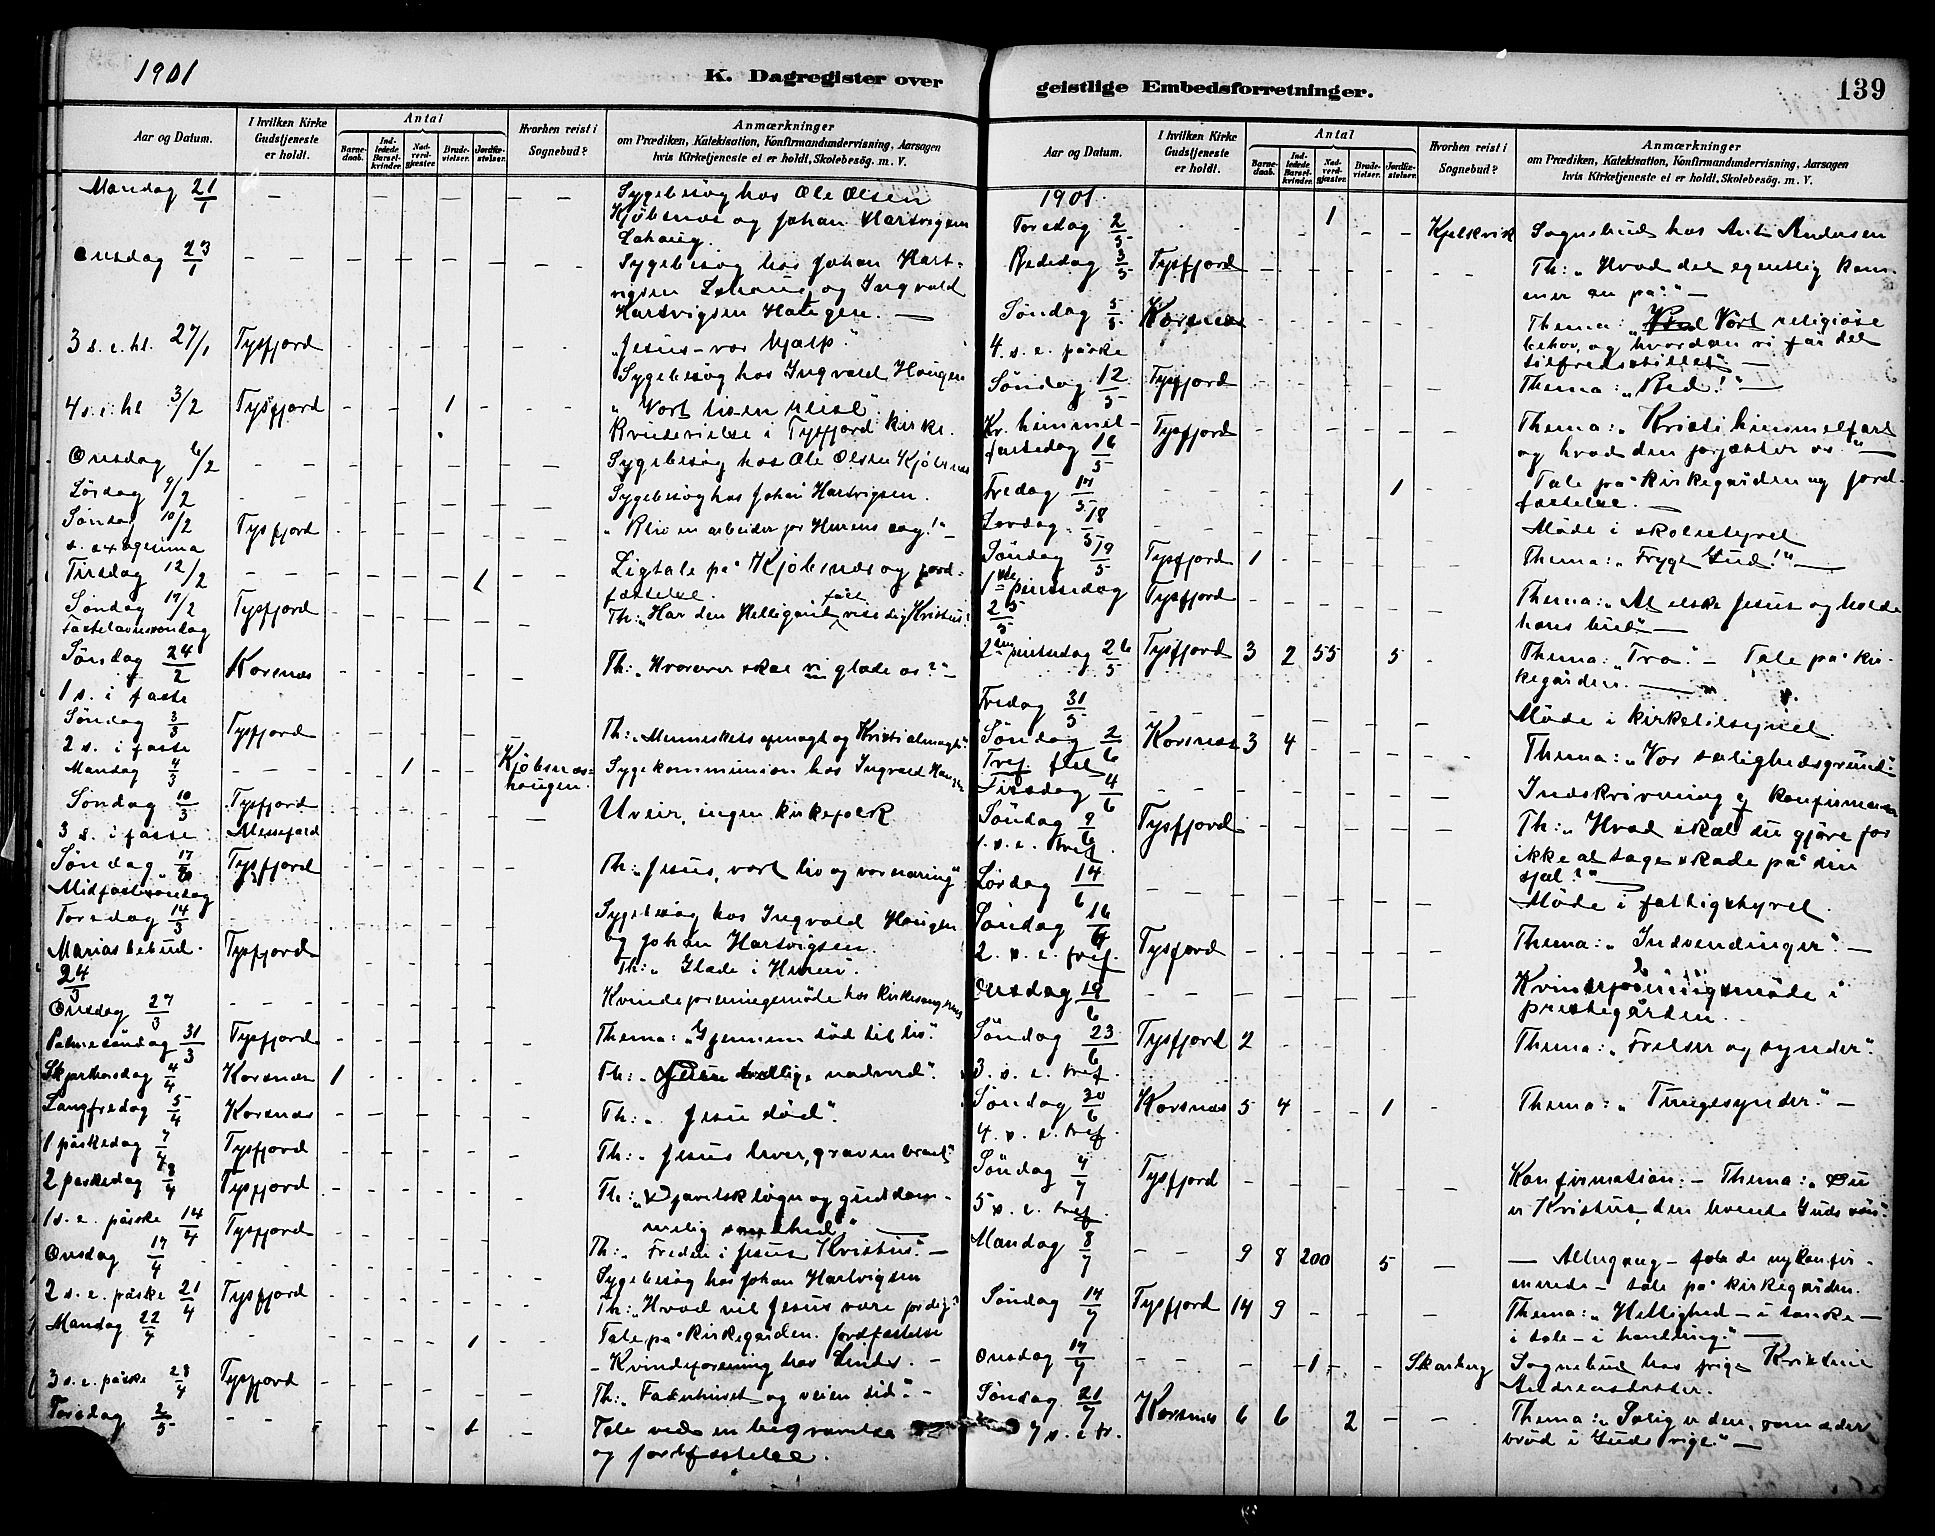 1901
K. Dagregister over
Aar og Datum.
I hvilken Kirke Gudstjeneste er holdt.
Antal
Barnedaab.
Indledede Barselkvinder.
Nadverdgjæster.
Brudevielser.
Jordfæstelser.
Hvorhen reist i Sognebud?
Anmærkninger
om Prædiken, Katekisation, Konfirmandundervisning, Aarsagen
hvis Kirketjeneste ei er holdt, Skolebesög. m. V.
Mandag 21/1 — Sygebesøg hos Ole Olsen
Kjöbsnæs og Johan Hartvigsen
Onsdag 23/1 — Sygebesøg hos Johan Hart-
vigsen og Ingvald
Hartvigsen Haugen. —
3 s. e. hl. 27/1 Tysfjord „Jesus – vor hjælp."
Sygebesøg hos Ingvald Haugen
4 s. e. hl 3/2 Tysfjord – – – 1 – – – „Vort livs en reise".
Brudevielse i Tysfjord kirke.
Onsdag 6/2 — Sygebesøg hos Ole Olsen Kjöbsnæs
Lørdag 9/2 — Sygebesøg hos Johan Hartvigsen.
Søndag 10/2 Tysfjord „Bliv en arbeider for Herrens sag!" –
s. sexagesima
Tirsdag 12/2 – – – – – 1 Ligtale på Kjöbsnæs og jord-
fæstelse.
Søndag 17/2 Tysfjord Th: „Har den Helligånd fået vise dig Kristus?
Fastelavnssøndag
Søndag 24/2 Korsnæs Th: „Hvorover skal vi glæde os?" –
1 s. i faste
Søndag 3/3 Tysfjord Th: „Menneskets afmagt og Kristi almagt".
2 s. i faste
Mandag 4/3 – – – 1 – – Kjöbsnæs- Sygekommunion hos Ingvald Haugen
haugen.
Søndag 10/3 Tysfjord Uveir, ingen kirkefolk
3 s. i faste Messefald
Søndag 17/3 Tysfjord Th: „Jesus, vort liv og vor næring"
Midfastesøndag
Torsdag 14/3 Sygebesøg hos Ingvald Haugen
og Johan Hartvigsen.
Marias bebud. Tysfjord Th: „Glæde i Herren".
24/3
Onsdag 27/3 – Kvindeforeningsmöde hos kirkesangeren
Palmesöndag 31/3 Tysfjord Thema: „Gjennem död til liv".
Skjærtorsdag 4/4 Korsnæs 1 Th: „ hellige nadverd".
Langfredag 5/4 Korsnæs Th: „Jesu död".
1 påskedag 7/4 Tysfjord Th: „Jesus lever, graven brast"
2 påskedag 8/4 Tysfjord Th: „Djævelsk løgn og guddom-
melig sandhed" —
1 s. e. påske 14/4 Tysfjord Th: „Freden i Jesus Kristus". –
Onsdag 17/4 – Sygebesøg hos Johan Hartvigsen
2 s. e. påske 21/4 Tysfjord Th: „Hvad vil Jesus være for dig?"
Mandag 22/4 – – – – 1 Tale på kirkegården. Jordfæstelse
– Kvindeforening hos –
3 s. e. påske 28/4 Tysfjord Th: „Faderhuset og veien did". –
Torsdag 2/5 – – – – 1 Tale ved en begravelse
og jordfæstelse.
geistlige Embedsforretninger.
139
Aar og Datum.
I hvilken Kirke Gudstjeneste er holdt.
Antal
Barnedaab.
Indledede Barselkvinder.
Nadverdgjæster.
Brudevielser.
Jordfæstelser.
Hvorhen reist i Sognebud?
Anmærkninger
om Prædiken, Katekisation, Konfirmandundervisning, Aarsagen
hvis Kirketjeneste ei er holdt, Skolebesög. m. V.
1901.
Torsdag 2/5 – – – 1 – – Kjelkvik Sognebud hos Andersen
Bededag 3/5 Tysfjord Th: „Hvad det egentlig kom-
mer an på:" –
Søndag 5/5 Korsnæs Thema: „Vort religiøse
behov, og hvordan vi får det
4. s. e. påske tilfredsstillet" —
Søndag 12/5 Tysfjord Thema: „Bed!" —
Kr. himmel- Tysfjord Thema: „Kristi himmelfart
fartsdag 16/5 og hvad den forjætter os." –
Fredag 17/5 – – – – 1 Tale på kirkegården og jord-
fæstelse. —
Lørdag 18/5 – Møde i skolestyret
Søndag 19/5 Tysfjord 1 Thema: „Frygt Gud!" —
1ste pinsedag Tysfjord Thema: „At elske Jesus og holde
25/5 hans bud" —
2den pinsedag 26/5 Tysfjord 3 2 55 5 – Thema: „Tro". – Tale på kir-
kegården. —
Fredag 31/5 – Møde i kirketilsynet
Søndag 2/6 Korsnæs 3 4 Thema: „Vor salighedsgrund".
Tref. fest
Tirsdag 4/6 – Indskrivning af konfirmanter
Søndag 9/6 Tysfjord Th: „Hvad skal du gjøre for
1. s. e. tref. ikke at tage skade på din
sjæl?" —
Lørdag 14/6 – Møde i fattigstyret.
Søndag 16/6 Tysfjord Thema: „Indvendinger". –
2. s. e. tref.
Onsdag 19/6 – Kvindeforeningsmöde i
prestegården.
Søndag 23/6 Tysfjord 2 Thema: „Frelser og synder".
3. s. e. tref.
Søndag 30/6 Korsnæs 5 4 – – 1 – Thema: „Tungesynder". –
4. s. e. tref.
Søndag 7/7 Tysfjord Konfirmation. – Thema: „Du
5 s. e. tref. er Kristus, den levende Guds søn".
Mandag 8/7 – – 9 8 200 5 — – Altergang – for de nykonfir-
merede – tale på kirkegården.
Søndag 14/7 Tysfjord 14 9 Thema: „Hellighed – i tanke –
i tale – i handling". –
Onsdag 17/7 – – – 1 – – Skarberg Sognebud hos pige Kristine
Andreasdatter.
Søndag 21/7 Korsnæs 6 6 2 – – Thema: „Salig er den, som æder
7 s. e. tr. brød i Guds rige". –